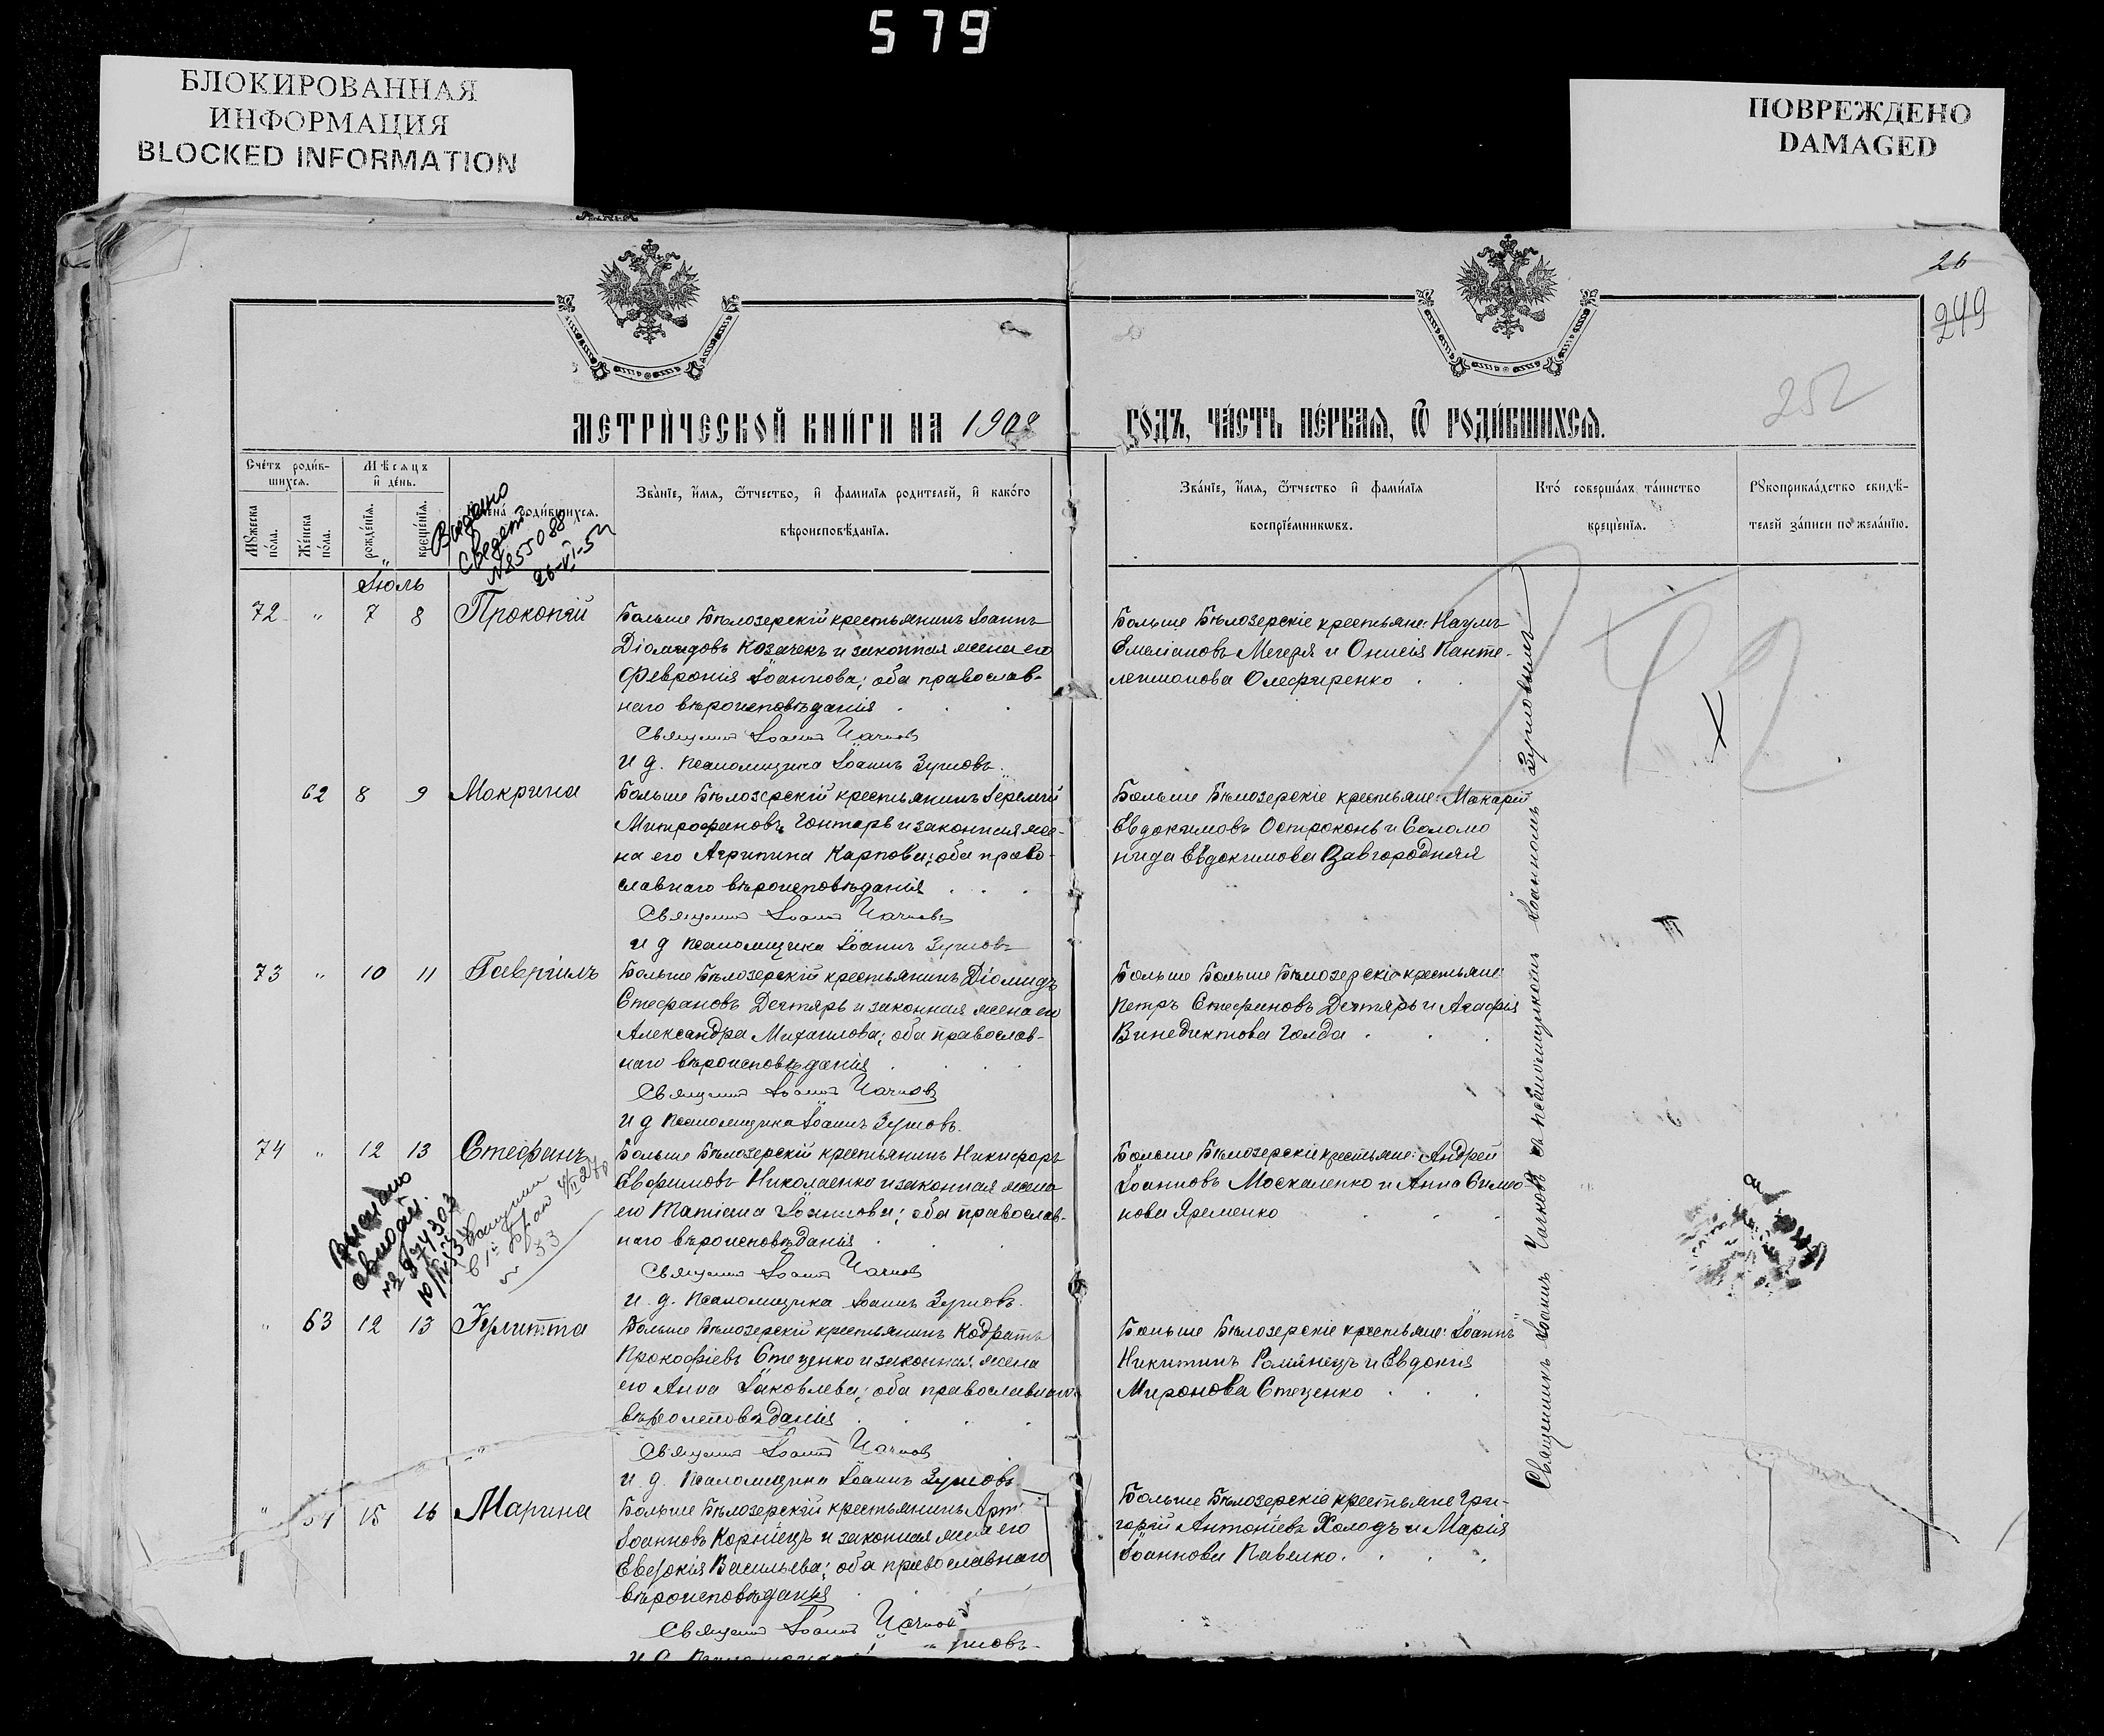 579
БЛОКИРОВАННАЯ
ИНФОРМАЦИЯ
BLOCKED INFORMATION
ПОВРЕЖДЕНО
DAMAGED
26
249
252
МЕТРИ́ЧЕСКОЙ КНИ́ГИ НА 1908
ГО́ДЪ, ЧА́СТЬ ПЕ́РВАЯ, Ѿ РОДИ́ВШИХСЯ.
Сче́тъ роди́в-
шихся.
Му́жеска по́ла.
Же́нска по́ла.
Мѣ́сяцъ
и҆ де́нь.
рожде́нїя.
креще́нїя.
роди́вшихся.
Зва́нїе, и҆́мя, ѻ҆́тчество, и҆ фами́лїя родителей, и҆ како́го
вѣроисповѣ́данїя.
Зва́нїе, и҆́мя, ѻ҆́тчество и҆ фами́лїя
воспрїе́мниковъ.
Кто̀ соверша́лъ та́инство
креще́нїя.
Рꙋкоприкла́дство свидѣ́-
телей за́писи по жела́нїю.
Выдано
Свидет
№ 855088
26-VI-52
Іюль
72 " 7 8 Прокопій
Больше Бѣлозерскій крестьянинъ Іоаннъ
Діомидовъ Козачекъ и законная жена его
Феврония Іоаннова; оба православ-
наго вѣроисповѣданія
Священ Іоанн Чачков
и д. псаломщика Іоаннъ Зумовъ.
Больше Бѣлозерскіе крестьяне: Наумъ
Емеліановъ Мегеря и Онисія Панте-
леимонова Олефиренко
62 8 9 Мокрина
Больше Бѣлозерскій крестьянинъ Іеремій
Митрофановъ Гонтарь и законная же-
на его Агрипина Карпова; оба право-
славнаго вѣроисповѣданія
Священ Іоанн Чачковъ
и д псаломщика Іоаннъ Зумовъ
Больше Бѣлозерскіе крестьяне: Макарій
Евдокимовъ Остроконь и Соломо
нида Евдокимова Завгородняя
73 " 10 11 Гавріилъ
Больше Бѣлозерскій крестьянинъ Діомидъ
Стефановъ Дегтярь и законная жена его
Александра Михаилова; оба православ-
наго вѣроисповѣданія
Священ Іоанн Чачков
и д псаломщика Іоаннъ Зумовъ.
Больше Больше Бѣлозерскіе крестьяне:
Петръ Стефановъ Дегтярь и Агафія
Винедиктова Голда
74 " 12 13 Стефанъ
Больше Бѣлозерскій крестьянинъ Никифоръ
Евфимовъ Николаенко и законная жена
его Татіана Іоаннова; оба православ-
наго вѣроисповѣданія
Священ Іоанн Чачков
и. д. псаломщика Іоаннъ Зумовъ.
Больше Бѣлозерскіе крестьяне: Андрей
Іоанновъ Москаленко и Анна Симео
нова Яременко
" 63 12 13 Іулитта
Больше Бѣлозерскій крестьянинъ Кодратъ
Прокофіевъ Стеценко и законная жена
его Анна Іаковлева; оба православнаго
вѣроисповѣданія
Священ Іоанн Чачков
и. д. псаломщика Іоаннъ Зумовъ
Больше Бѣлозерскіе крестьяне: Іоаннъ
Никитинъ Романецъ и Евдокія
Миронова Стеценко
" 15 16 Марина
Больше Бѣлозерскій крестьянинъ Арт
Іоанновъ Корніецъ и законная жена его
Евдокія Васильева; оба православнаго
вѣроисповѣданія
Священ Іоанн Чачков
Больше Бѣлозерскіе крестьяне Гри-
горій Антоніевъ Холодъ и Марія
Іоаннова Павелко.
Священникъ Іоаннъ Чачковъ съ псаломщикомъ Іоанномъ Зумовымъ